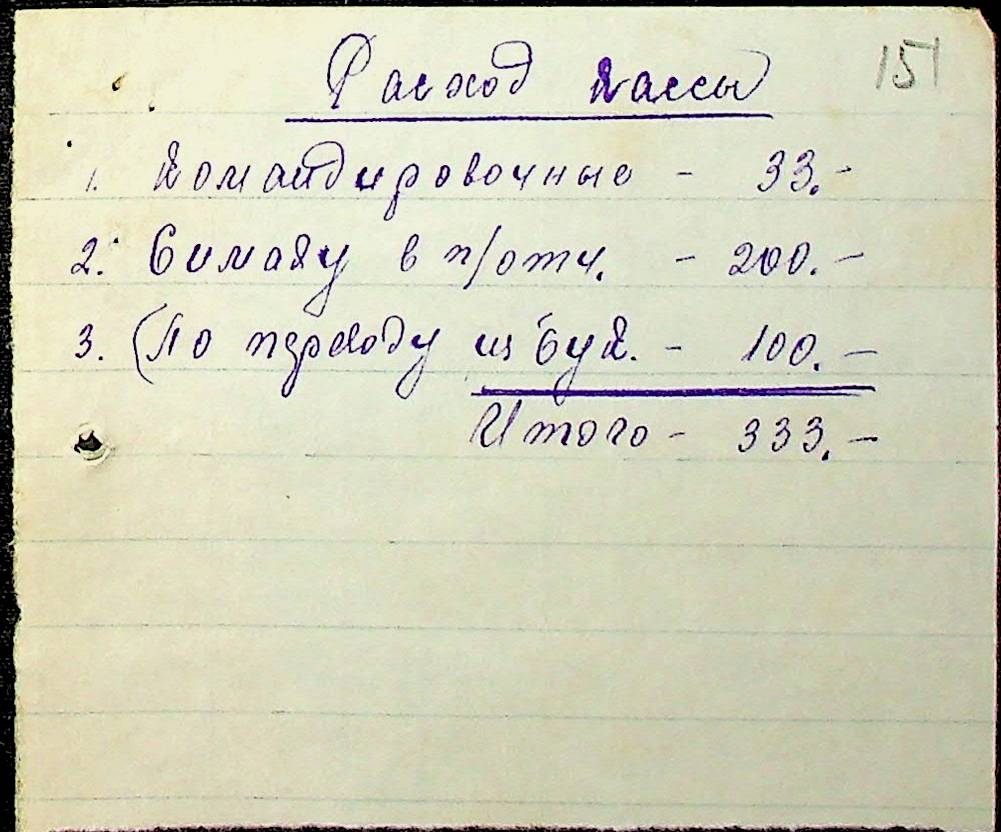 151
Расход кассы
1. Командировочные - 33.-
2. Симаку в п/отч. - 200.-
3. (По переводу из бух. - 100.-
Итого - 333.-